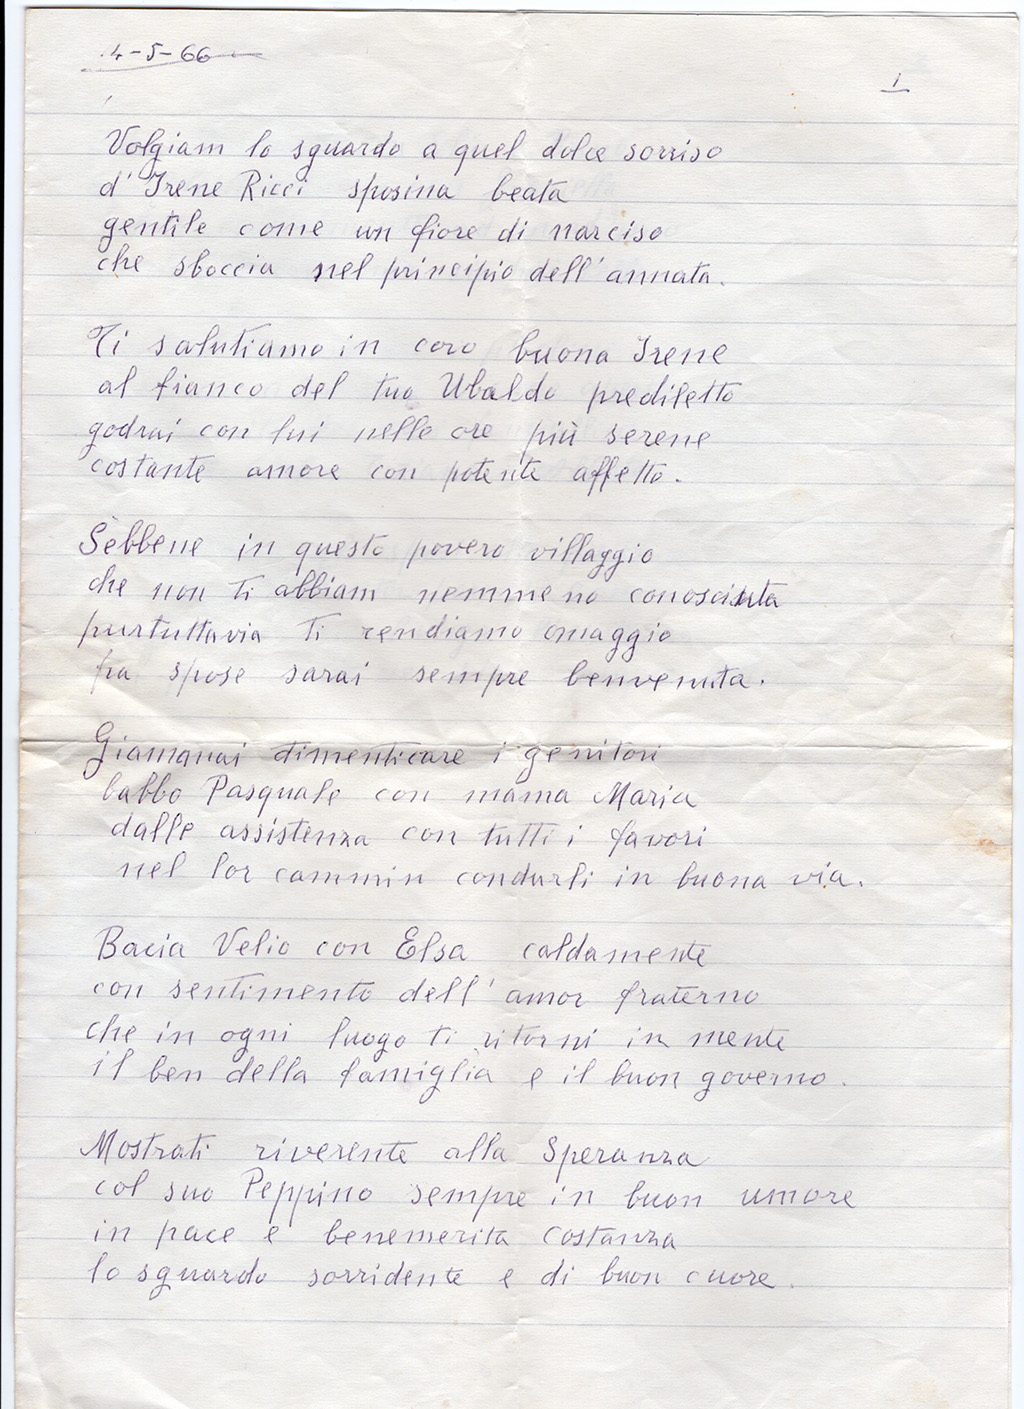 4-5-66
1
Volgiam lo sguardo a quel dolce sorriso
d'Irene Ricci sposina beata
gentile come un fiore di narciso
che sboccia nel principio dell'annata.
Ti salutiamo in coro buona Irene
al fianco del tuo Ubaldo prediletto
godrai con lui nelle ore più serene
costante amore con potente affetto.
Sebbene in questo povero villaggio
che non ti abbiam nemmeno conosciuta
purtuttavia ti rendiamo omaggio
fra spose sarai sempre benvenuta.
Giammai dimenticare i genitori
babbo Pasquale con mama Maria
dalle assistenza con tutti i favori
nel lor cammin condurli in buona via.
Bacia Velio con Elsa caldamente
con sentimento dell'amor fraterno
che in ogni luogo ti ritorni in mente
il ben della famiglia e il buon governo.
Mostrati riverente alla Speranza
col suo Peppino sempre in buon umore
in pace e benemerita costanza
lo sguardo sorridente e di buon cuore.